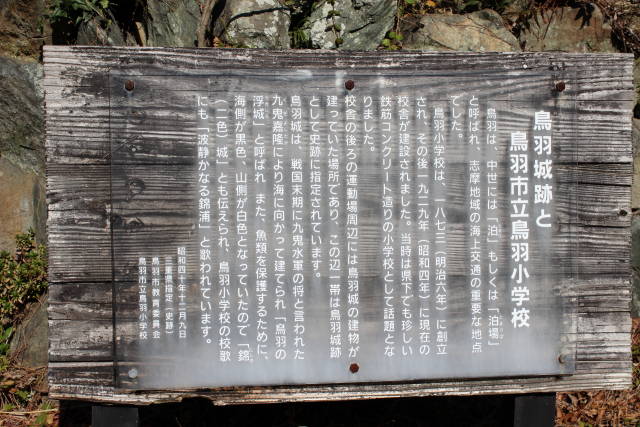 鳥羽城跡と
鳥羽市立鳥羽小学校
鳥羽は、中世には「泊」もしくは「泊場」
と呼ばれ、志摩地域の海上交通の重要な地点
でした。
鳥羽小学校は、一八七三（明治六年）に創立
され、その後一九二九年（昭和四年）に現在の
校舎が建設されました。当時は県下でも珍しい
鉄筋コンクリート造りの小学校として話題とな
りました。
校舎の後ろの運動場周辺には鳥羽城の建物が
建っていた場所であり、この辺一帯は鳥羽城跡
として史跡に指定されています。
鳥羽城は、戦国末期に九鬼水軍の将と言われた
九鬼嘉隆により海に向かって建てられ「鳥羽の
浮城」と呼ばれ また、魚類を保護するために、
海側が黒色、山側が白色となっていたので「錦
（二色）城」とも伝えられ、鳥羽小学校の校歌
にも「波静かなる錦浦」と歌われています。
昭和四十年十二月九日
三重県指定（史跡）
鳥羽市教育委員会
鳥羽市立鳥羽小学校